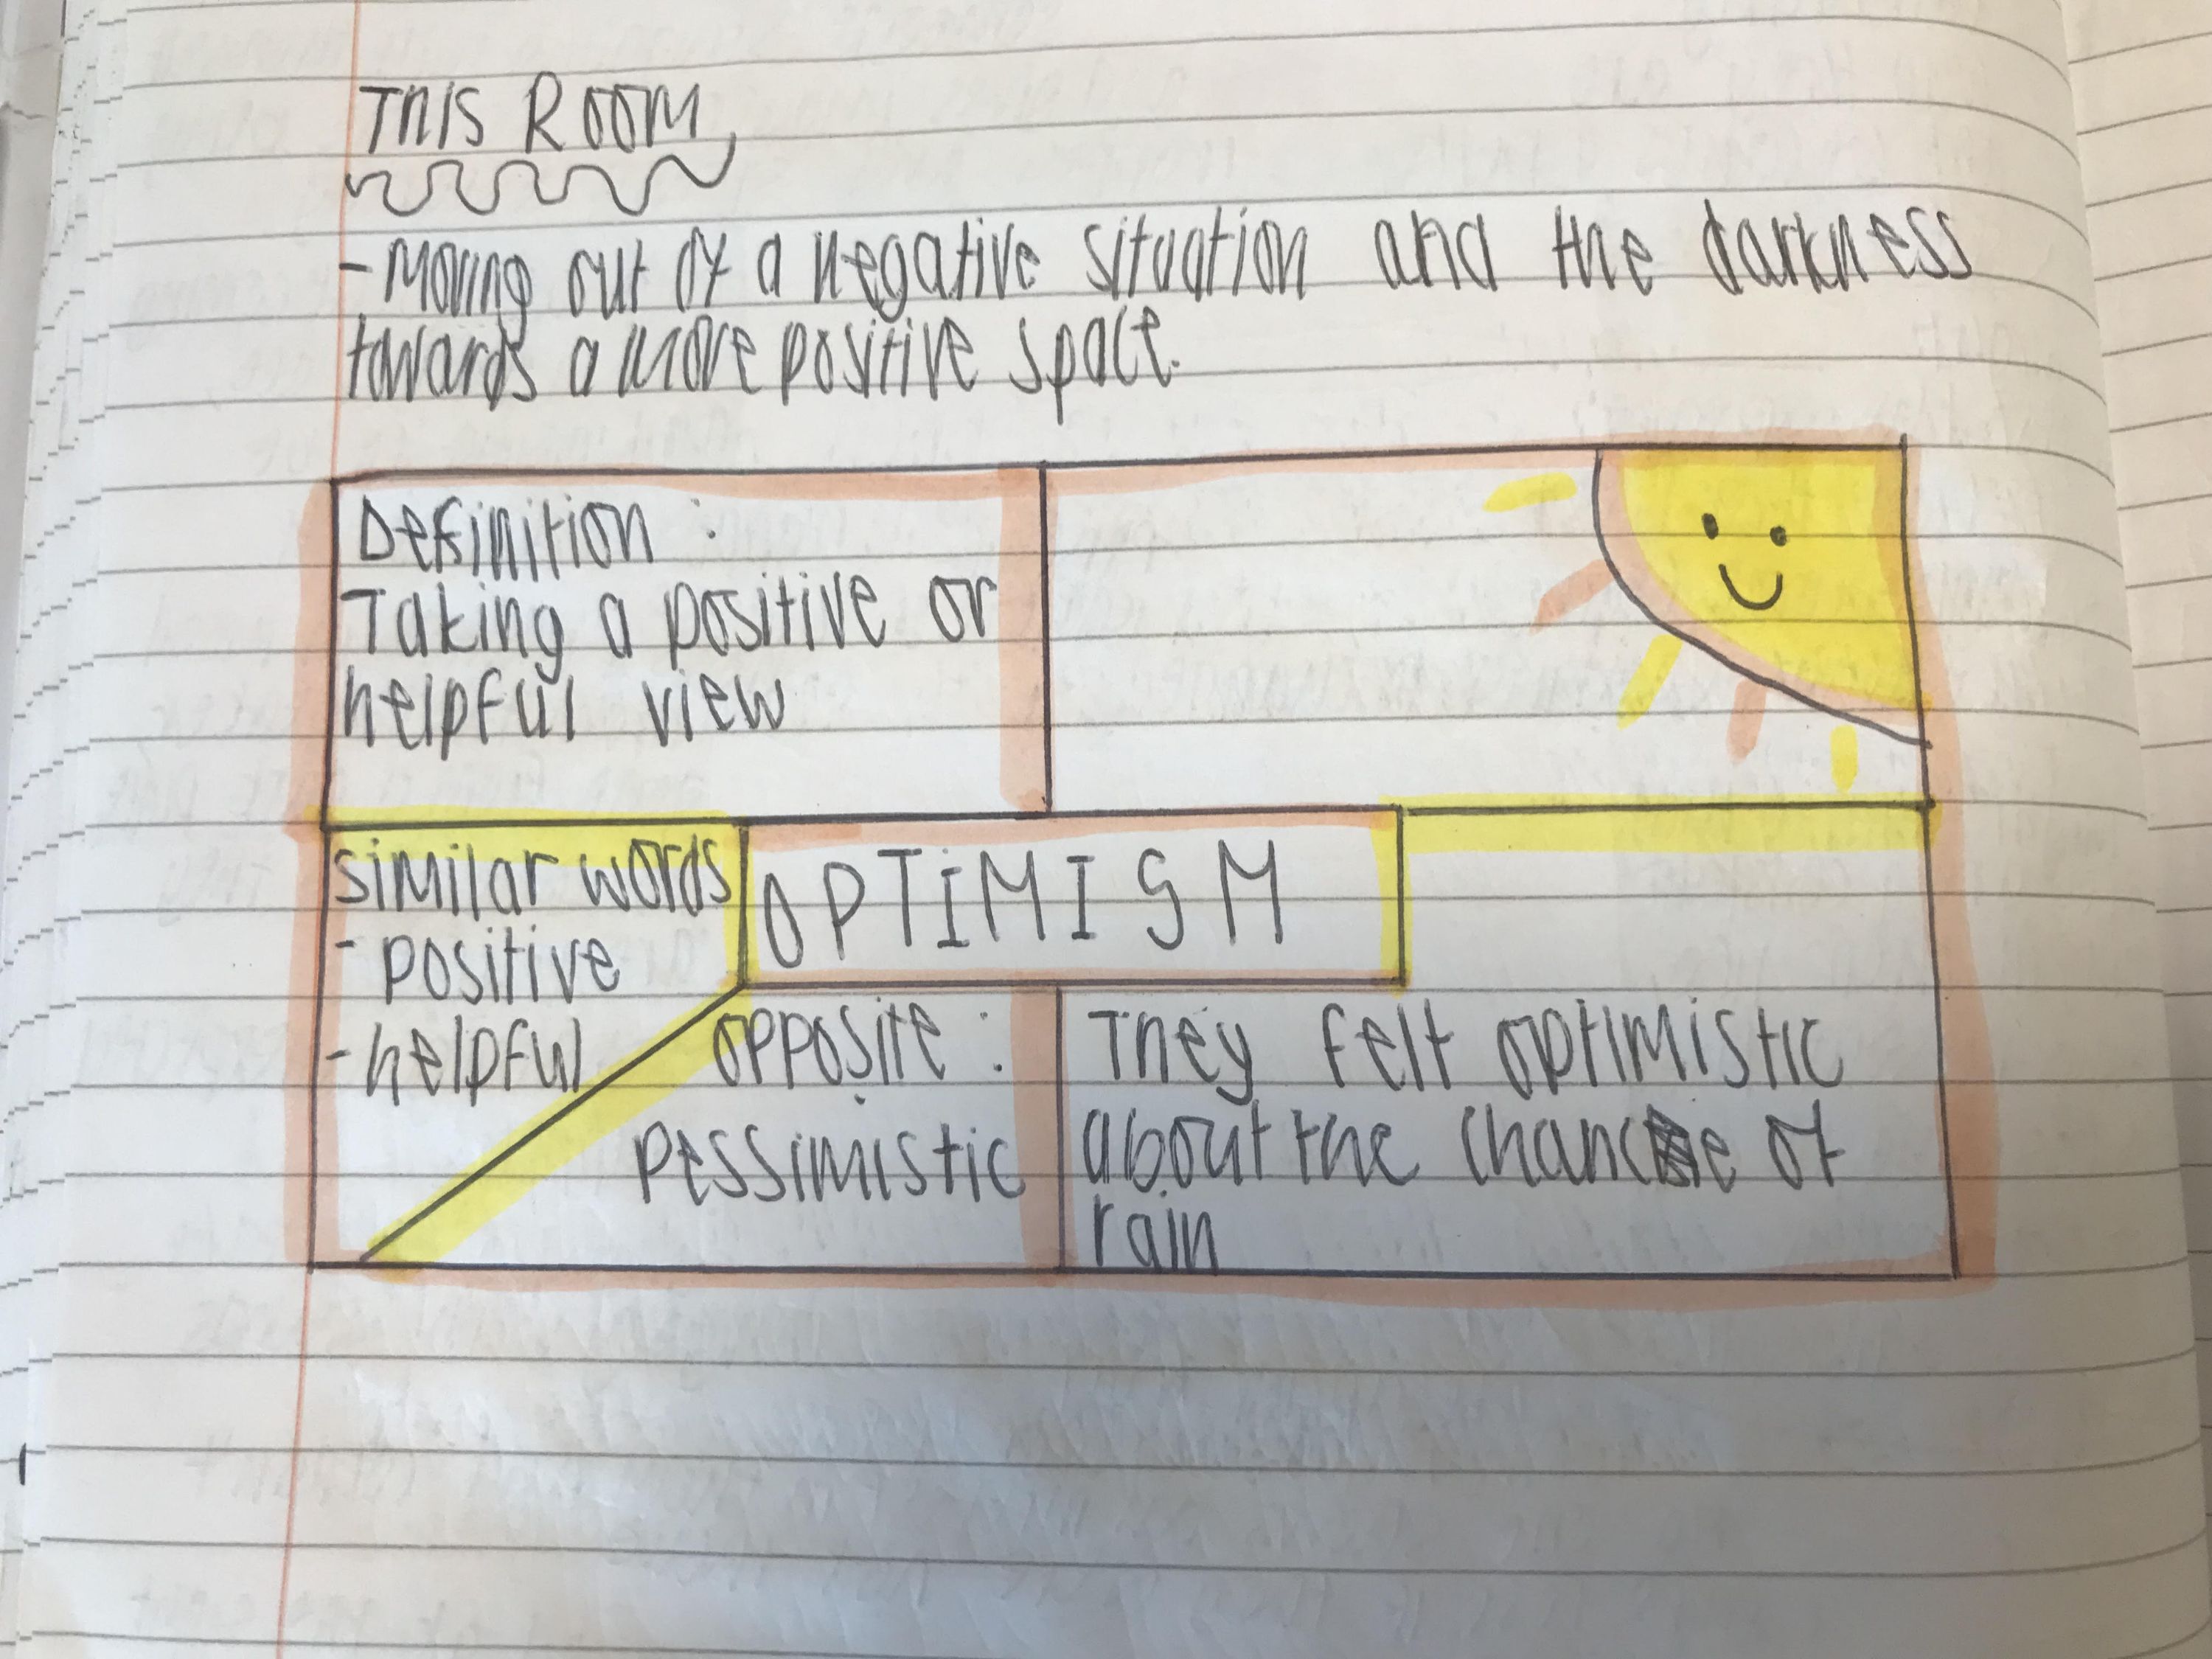 THIS ROOM
- Moving out of a negative situation and the darkness
towards a more positive space.
Definition :
Taking a positive or
helpful view
similar words
- positive
- helpful
OPTIMISM
opposite :
pessimistic
They felt optimistic
about the chance of
rain